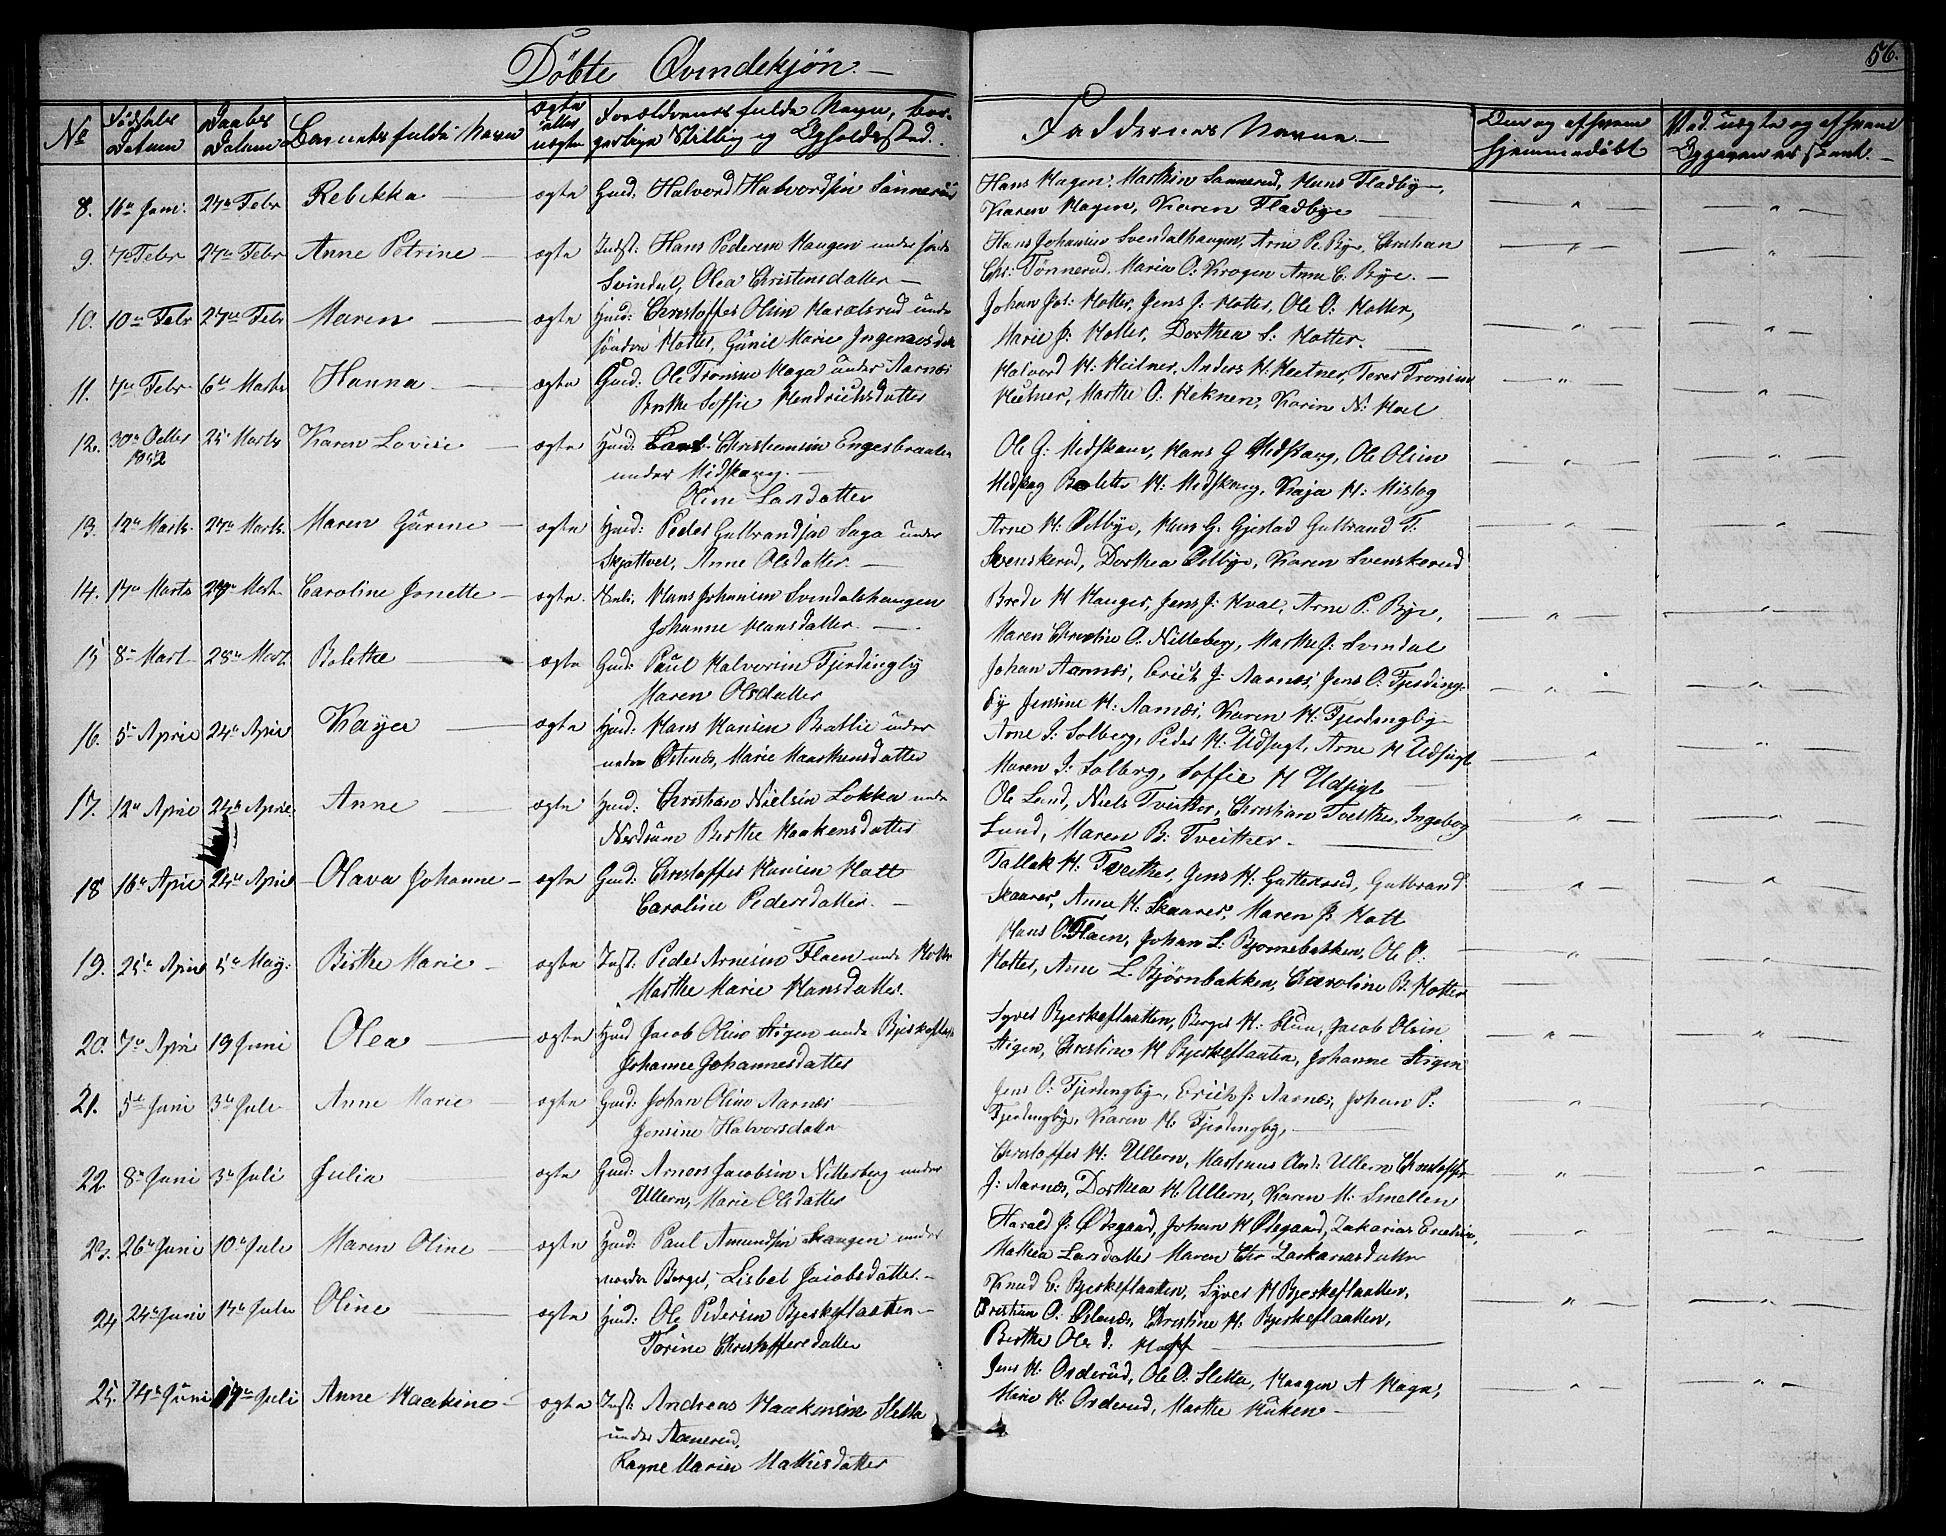 Döbte Qvindekjön.
56.
No
Fødsels Datum
Daabs Datum
Barnets fulde Navn
ægte eller uægte
Forældrenes fulde Navn, bor-
gerlige Stilling og Opholdssted.
Faddernes Navne.
Om og af hvem
hjemmedøbt
8. 16de Jani. 27de Febr Rebekka ægte Gaid: Halvord Halvordsen Sannerud
Hans Hagen, Sannerud, Hans Fladby,
Karen Hagen, Karen Fladbye
9. 7de Febr 27de Febr Anne Petrine ægte Indst: Hans Pedersen Haugen under
Svindal, Olea Christensdatter
Hans Johansen Svendalhaugen, Arne P. Bye, Christian
Chr: Tønnerud, Maria O: Krogen Anne C. Bye.
10. 10de Febr 27de Febr Maren ægte Huusd: Christoffer Olsen Haralsrud unde
søndre Hotter, Gunil Marie Ingemosdat
Johan Jos: Hotter, Jens J. Hotter, Ole O. Hotter,
Marie J. Hotter, Dorthea S: Hotter.
11. 7de Febr 6te Marts Hanna ægte Gaid: Ole Tronsen Haga under Aarnæs
Berthe Soffie Hendrichsdatter
Halvord H. Heitner, Anders H. Heitner, Peter Tronsen
Heitner, Marthe O. Heknen, Karin N: Hoel
12. 30de Octbr 1852 25 Marts Karen Lovise ægte Huusd: Lars Christiansen Engesbraaten
under Midskoug.
Oline Larsdatter
Ole G: Midskouv, Hans G Midskoug, Ole Olsen
Bolette H: Midskoug, Kaja H: Miskog
13. 12de Marts 27de Marts Maren Gurine ægte Huusd: Peder Gulbrandsen Saga under
Skjattvet, Anne Olsdatter
Arne H. Ølbye, Hans G. Gjestad Gulbrand T.
Svenskerud, Dorthea Ølbye, Karen Svenskerud
14. 17de Marts 27de Mart Caroline Jonette ægte. Hans Johansen Svendalshaugen
Johanne Hansdatter.
Brede H Hauger, Jens J: Hval, Arne P. Bye,
Maren Christine O. Nitteberg, Marthe J. Svindal
15 8de Mart 28de Mart Bolethe ægte Gaid: Paul Halvorsen Fjerdingby
Maren Olsdatter
Johan Aarnæs, Erich J. Aarnæs, Jens O. Fjerding-
by Jensine H. Aarnæs, Karen H. Fjerdingby
16. 5te April 24de April Kaja ægte Huusd: Hans Hansen Brattlie under
nedre Østenæs, Marie Haakensdatter
Arne J. Solberg, Peder H: Udsigt, Arne H Udsigt
Maren J: Solberg, Soffie H Udsigt
17. 12de April 24de April Anne ægte Huusd: Christian Nielsen Løkka unde
Nordrum Berthe Haakensdatter
Ole Lund, Niels Tveither, Christian Tveither, Ingeborg
Lund, Maren B: Tveither.
18 16de April 24de April Olava Johanne ægte Gaid: Christoffer Hansen Hott
Caroline Pedersdatter.
Tallak H: Tveither, Jens H. Gutterud, Gulbrand
Skaarer, Anne H. Skaarer, Maren J. Hott
19. 25de April 5te May: Birthe Marie ægte Inst: Peder Arnesen Flaen unde Hotter
Marthe Marie Hansdatter.
Hans O. Flaen, Johan L: Bjornebakken, Ole O.
Hotter, Anne L. Bjørnbakken, Charoline B. Hotter
20. 7de April 19 Juni Olea ægte Huusd Jacob Olsen Stigen unde Bjerkeflaat
Johanne Johannesdatter
Syver Bjerkeflaatten, Berger H: Huu, Jacob Olsen
Stigen, Christine H Bjerkeflaaten, Johanne Stigen
21. 5te Juni 3de Juli Anne Marie ægte Gaid: Johan Olsen Aarnæs
Jensine Halvorsdatter
Jens O: Fjerdingby, Erich J. Aarnæs, Johan P:
Fjerdingby, Karen H. Fjerdingby,
22. 8de Juni 3de Juli Julia ægte Gaid: Arners Jacobsen Nitterberg under
Ullern, Marie Olsdatter
Christoffer H: Ullern, Mathinus And: Ullern Christoffer
J: Aarnæs, Dorthea H. Ullern, Karen M: Smellen
23. 26de Juni 10de Juli Maren Oline ægte Huusd: Paul Amundsen Haugen under
nordre Berger, Lisbet Jacobsdatter.
Harald J: Ødegaard, Johan H Ødegaard, Zakarias Enersen,
Mathea Larsdatter Maren Chr Zackariasdatter
24 24de Juni 17de Juli Oline ægte Huusd: Ole Pedersen Bjerkeflaatten
Torine Christoffersdatter
Knud E: Bjerkeflaaten, Syver H Bjerkeflaatten,
Christian O. Østenæs, Christine H. Bjerkeflaatten,
Berthe Ole d: Hoff
25. 24de Juni 17de Juli Anne Haakine ægte Inst: Andreas Haakensen Sletta
under Aamerud,
Ragne Marien Mathisdatter
Jens H. Orderud, Ole O. Sletta, Haagen A Hagn,
Marie H. Orderud, Marthe Huken